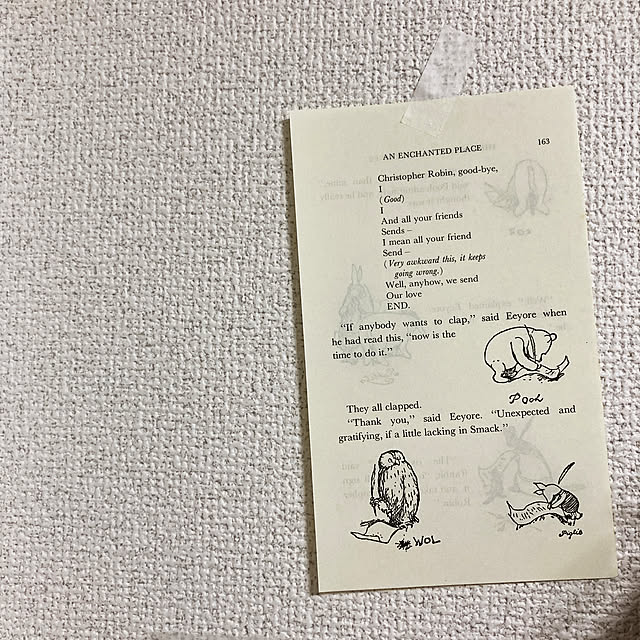 AN ENCHANTED PLACE 163
Christopher Robin, good-bye,
I
(Good)
I
And all your friends
Sends –
I mean all your friend
Send –
(Very awkward this, it keeps
going wrong.)
Well, anyhow, we send
Our love
END.
"If anybody wants to clap," said Eeyore when
he had read this, "now is the
time to do it."
Pooh
They all clapped.
"Thank you," said Eeyore. "Unexpected and
gratifying, if a little lacking in Smack."
WOL